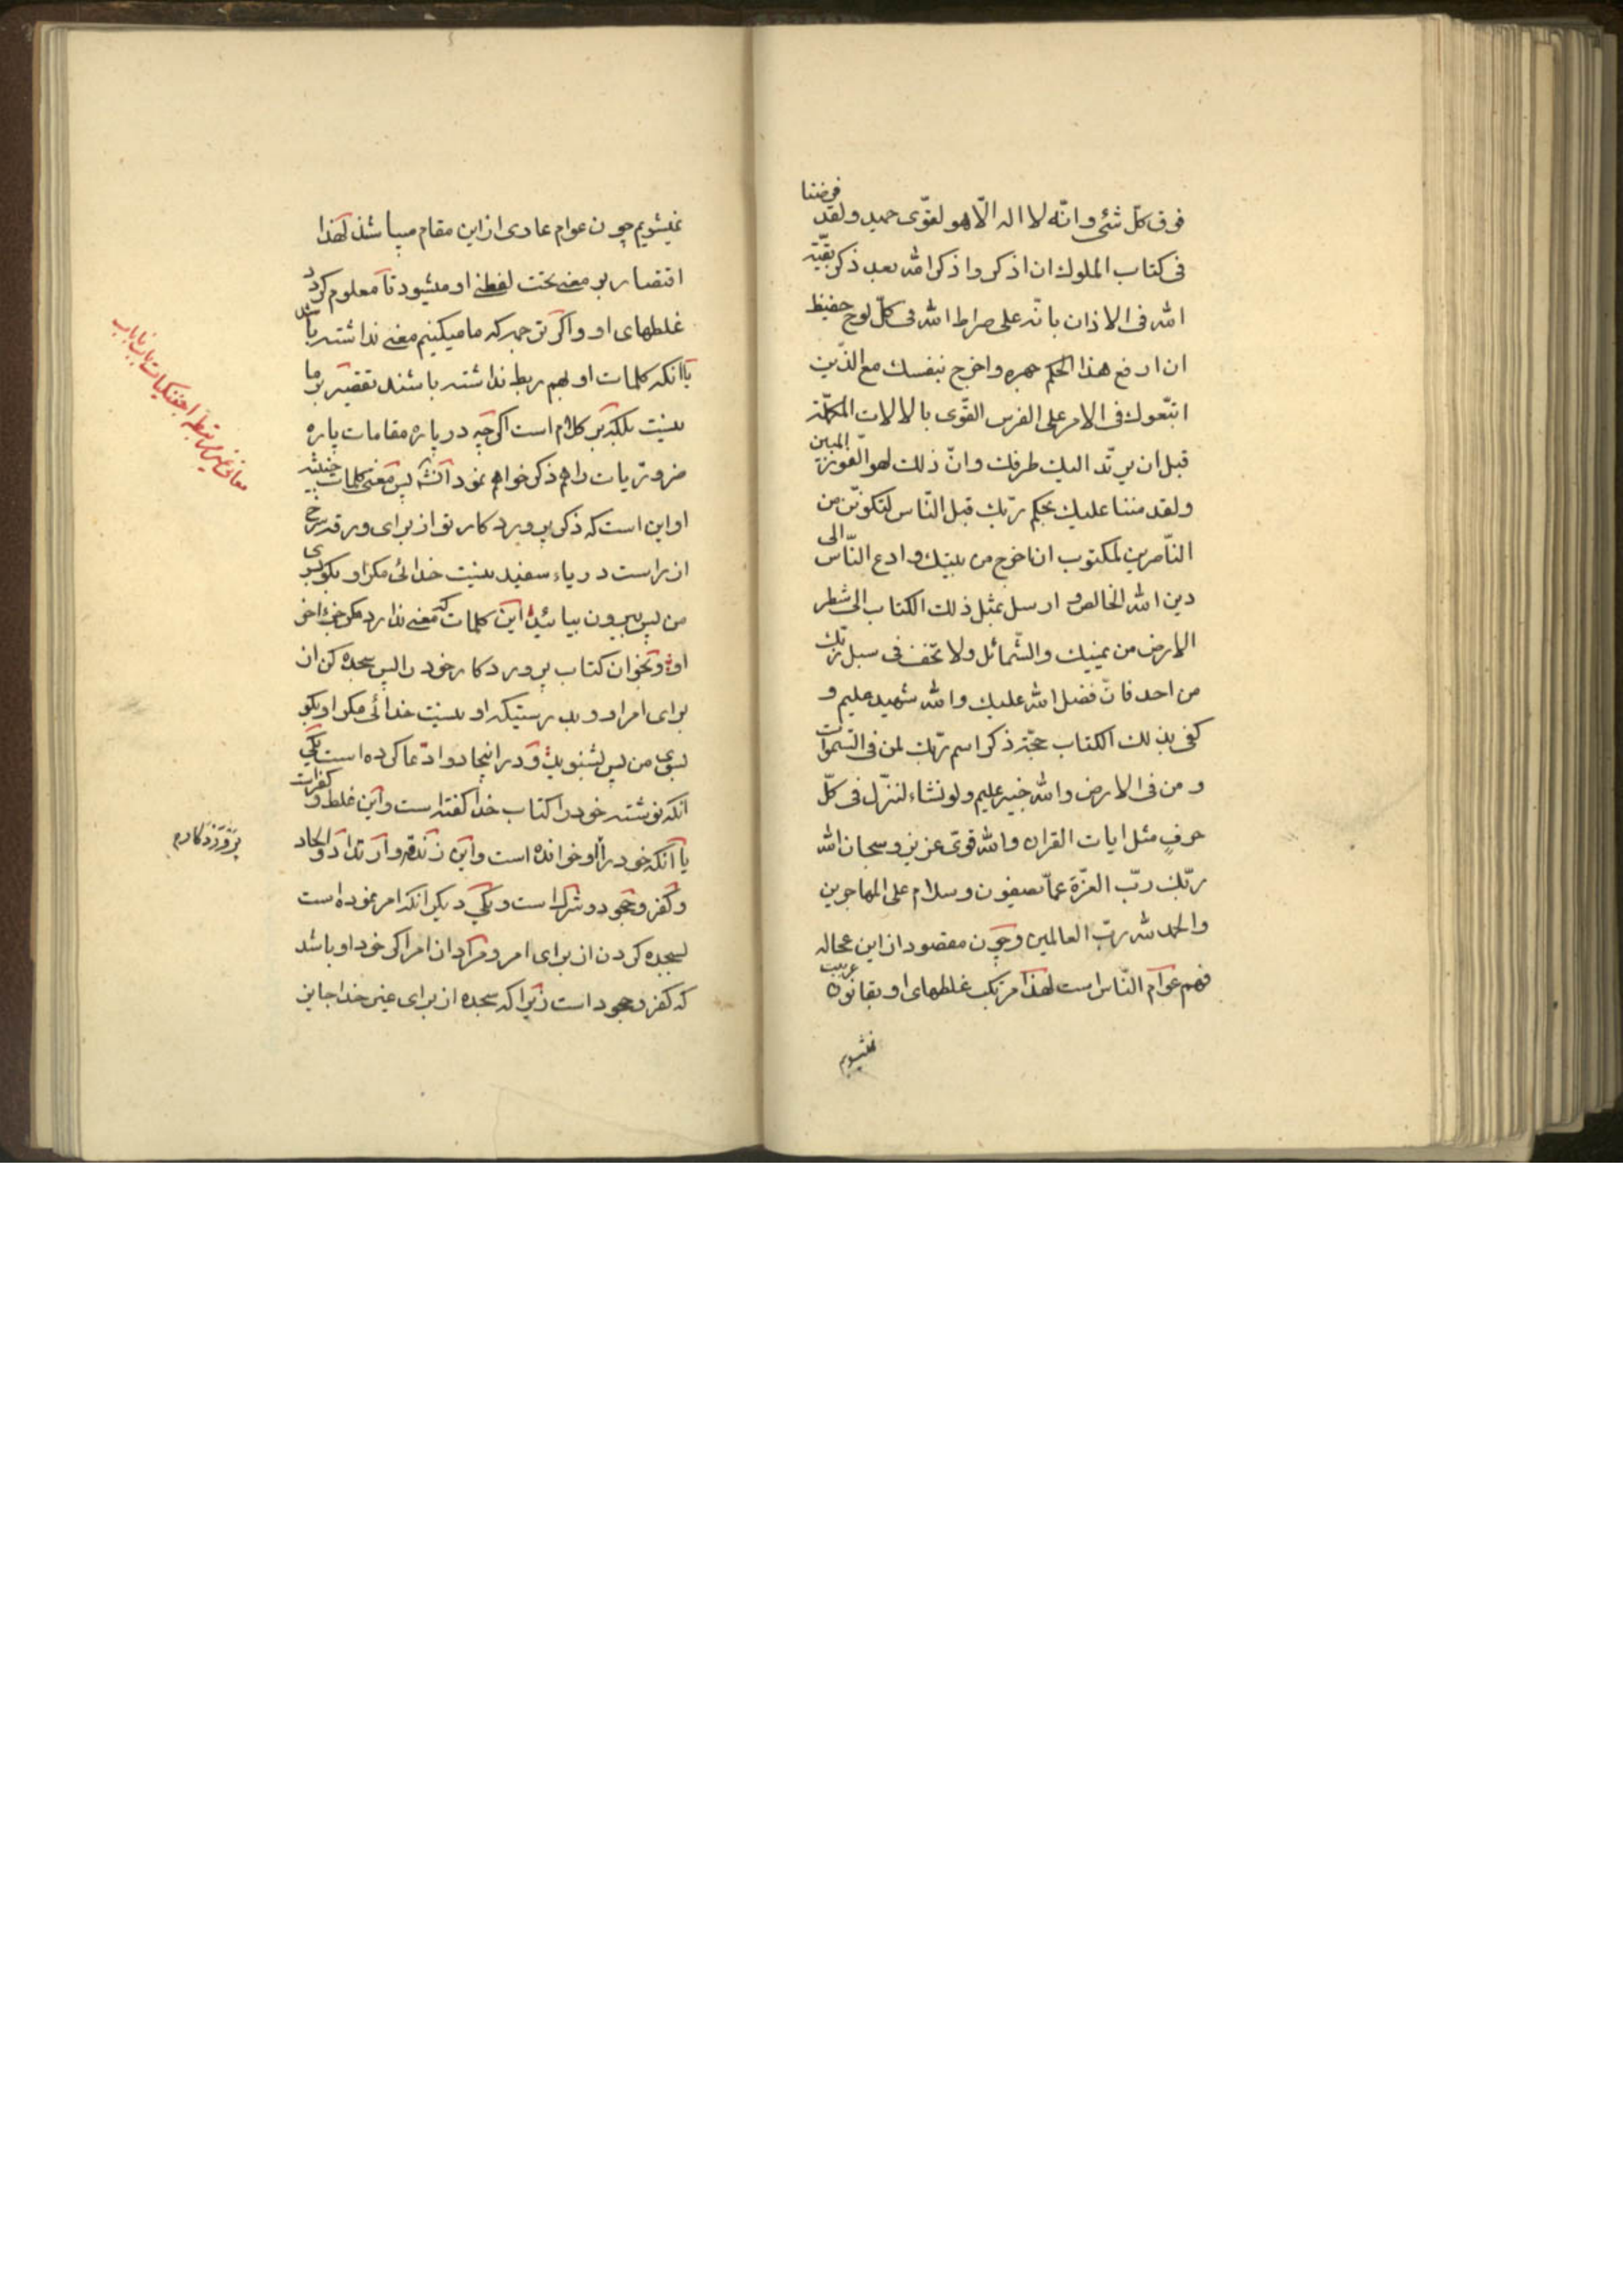 فوق كلّ شئ وانّه لا اله الّا هو لقوّى حميد ولقد فرضنا
فى كتاب الملوك ان اذكر واذكر الله بعد ذكر بقيّة
الله فى الاذان بانّه على صراط الله فى كلّ لوح حفيظ
ان ارفع هذا الحكم جهره واخرج بنفسك مع الذين
اتبّعوك فى الامر على الفرس القوّى بالالات المكمّلة
قبل ان يرتّد اليك طرفك وانّ ذلك لهو الفوز المبين
ولقد مننا عليك بحكم ربّك قبل النّاس لتكوننّ من
النّاصرين لمكتوب ان اخرج من بيتك وادع النّاس الى
دين الله الخالص و ارسل بمثل ذلك الكتاب الى شطر
الارض من يمينك والشّمائل ولا تخف فى سبل ربّك
من احد فانّ فضل الله عليك والله شهيد عليم و
كفى بذلك الكتاب حجّة ذكر اسم ربّك لمن فى السّموات
و من فى الارض والله خبير عليم ولو نشاء لننزّل فى كلّ
حرف مثل ايات القران والله قوىّ عزيز وسبحان الله
ربّك ربّ العزّة عمّا يصفون وسلام على المهاجرين
والحمد لله ربّ العالمين وچون مقصود از اين عجاله
فهم عوام النّاس است لهذا مرتكب غلطهاى او بقانون عربيت
نميشويم
نميشويم چون عوام عارى از اين مقام ميباشند لهذا
اقتصار بر معنى تحت لفظى او ميشود تا معلوم كردد
غلطهاى او و اكر ترجمه كه ما ميكنيم معنى نداشته باشد
يا آنكه كلمات او بهم ربط نداشته باشند تقصير بر ما
نيست بلكه بر كلام است اكرچه در پاره مقامات پاره
ضروريات را هم ذكر خواهم نمود انشاء پس معنى كلمات خبيثه
او اين است كه ذكر پروردكار تو از براى ورقه سرخ
از راست درياء سفيد نيست خدائى مكر او بكو بسوى
من پس بيرون بيائيد اين كلمات كه معنى ندارد مكر جزء اخر
او وبخوان كتاب پروردكار خود را پس سجده كن از
براى امر او و بدرستيكه او نيست خدائى مكر او بكو
بسوى من پس بشنويد و در اينجا دو ادّعا كرده است يكى
آنكه نوشته خود را كتاب خدا كفته است و اين غلط و كفر است
يا آنكه خود را او خوانده است و اين زندقه و ارتداد و الحاد
و كفر و جحود و شرك است و يكى ديكر انكه امر نموده است
بسجده كردن از براى امر و مراد از امر اكر خود او باشد
كه كفر و جحود است زيرا كه سجده از براى غير خدا جايز
پروردكارم